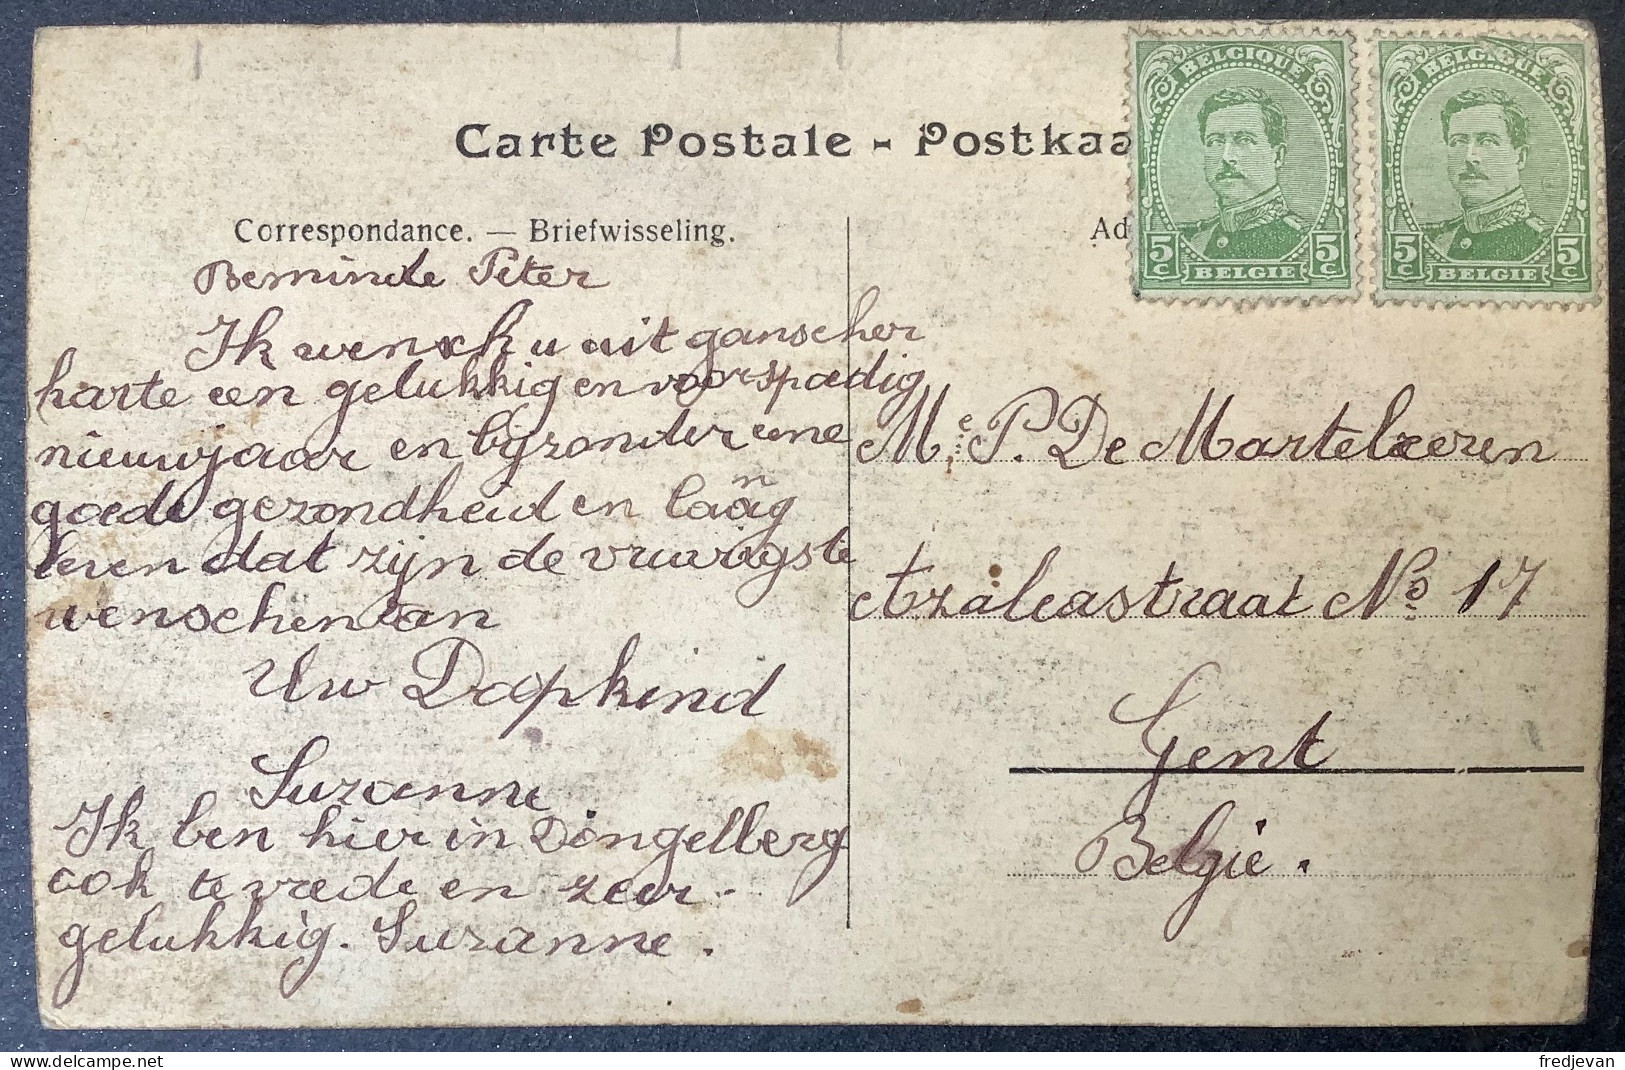 Carte Postale - Postkaa
Correspondance. — Briefwisseling.
Ad
BELGIQUE
5c 5c
BELGIE
BELGIQUE
5c 5c
BELGIE
Beminde Peter
Ik wensch u uit ganscher
harte een gelukkig en voorspoedig
nieuwjaar en bijzonder eene
goede gezondheid en laang
leven dat zijn de vruirigste
wenschen van
Uw Dopkind
Suzanne
Ik ben hier in Dongelberg
ook te vrede en zeer
gelukkig. Suzanne.
Me P. De Martelaeren
Azaleastraat No 17
Gent
Belgie.
fredjevan